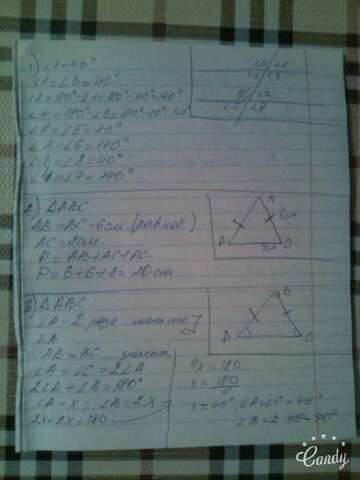 1) ∠1=40°
∠1=∠3=40°
∠2=180°-∠1=180°-40°=140°
∠4=180°-∠3=180°-40°=140°
∠1=∠5=40°
∠2=∠6=140°
∠3=∠8=40°
∠4=∠7=140°
2) △ABC
AB=BC=6см (равноб)
AC=8см
P=AB+AC+
P=6+6+8=20см
B
A
C
3) △ABC:
∠A - 2 раза меньше
∠B
AB=BC, значит,
∠A=∠C=2∠A
2∠A+∠B=180°
∠A=x, ∠B=2x
2x+2x=180
B
A
C
4x=180
x=180
x=45°, ∠A=∠C=45°
∠B=2·45=90°
Candy